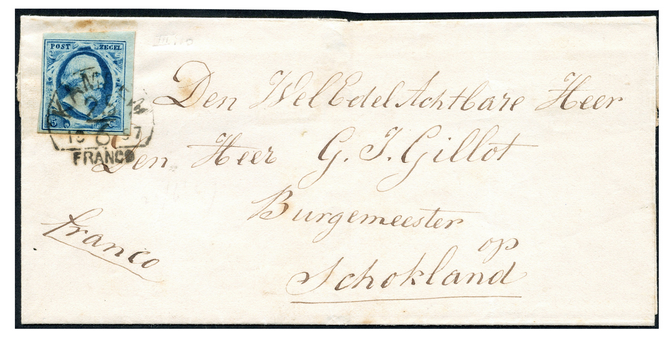 POST ZEGEL
FRANCO
Den WelEdelAchtbare Heer
Den Heer G. J. Gillot
Burgemeester
op
Schokland
franco